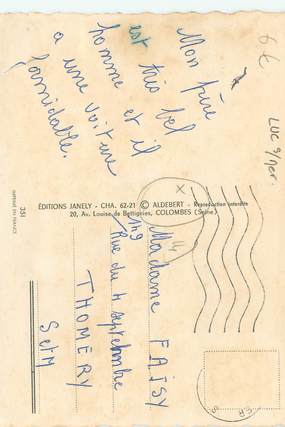 Mon père
est très bel
homme et il
a une voiture
formidable.
6 €
LUC s/mer.
ÉDITIONS JANELY - CHA. 62-21 © ALDEBERT - Reproduction interdite
20, Av. Louise de Bettignies, COLOMBES (Seine)
351
IMPRIMÉ EN FRANCE
Madame FAISY
149 Rue du 4 septembre
THOMERY
S et M